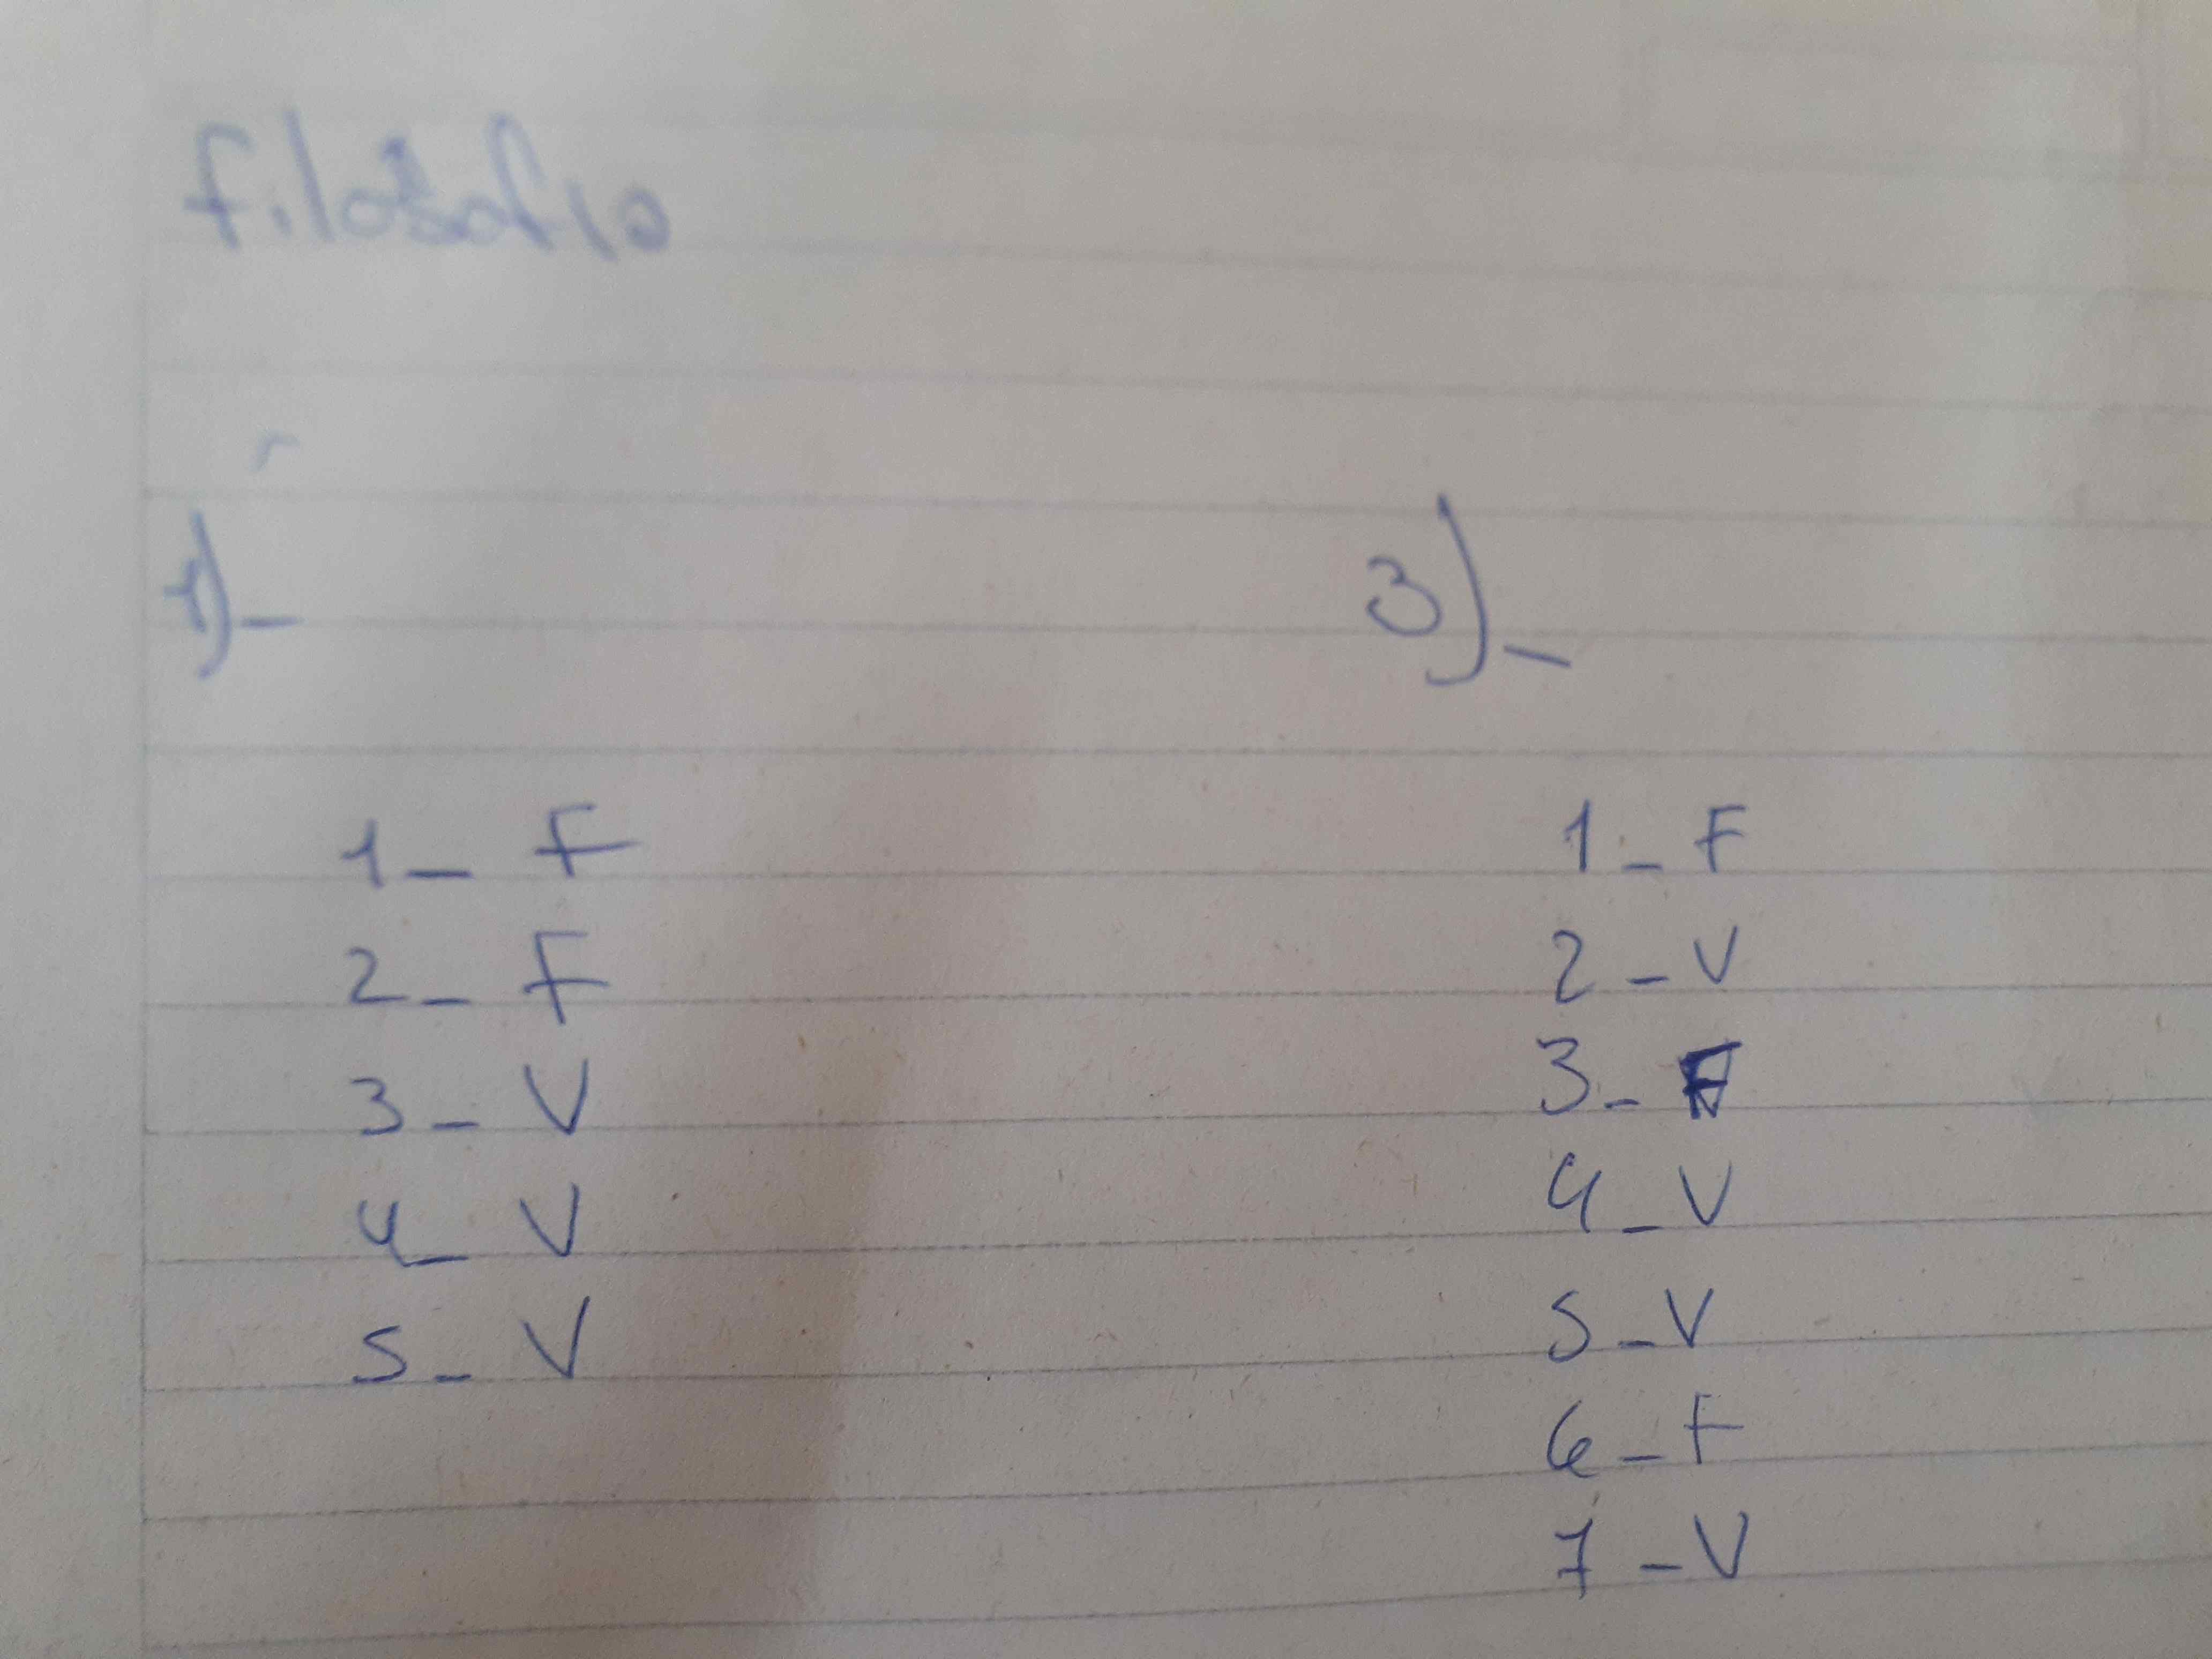 filosofia
1)-
1- F
2- F
3- V
4- V
5- V
3)-
1- F
2- V
3- F
4- V
5- V
6- F
7- V